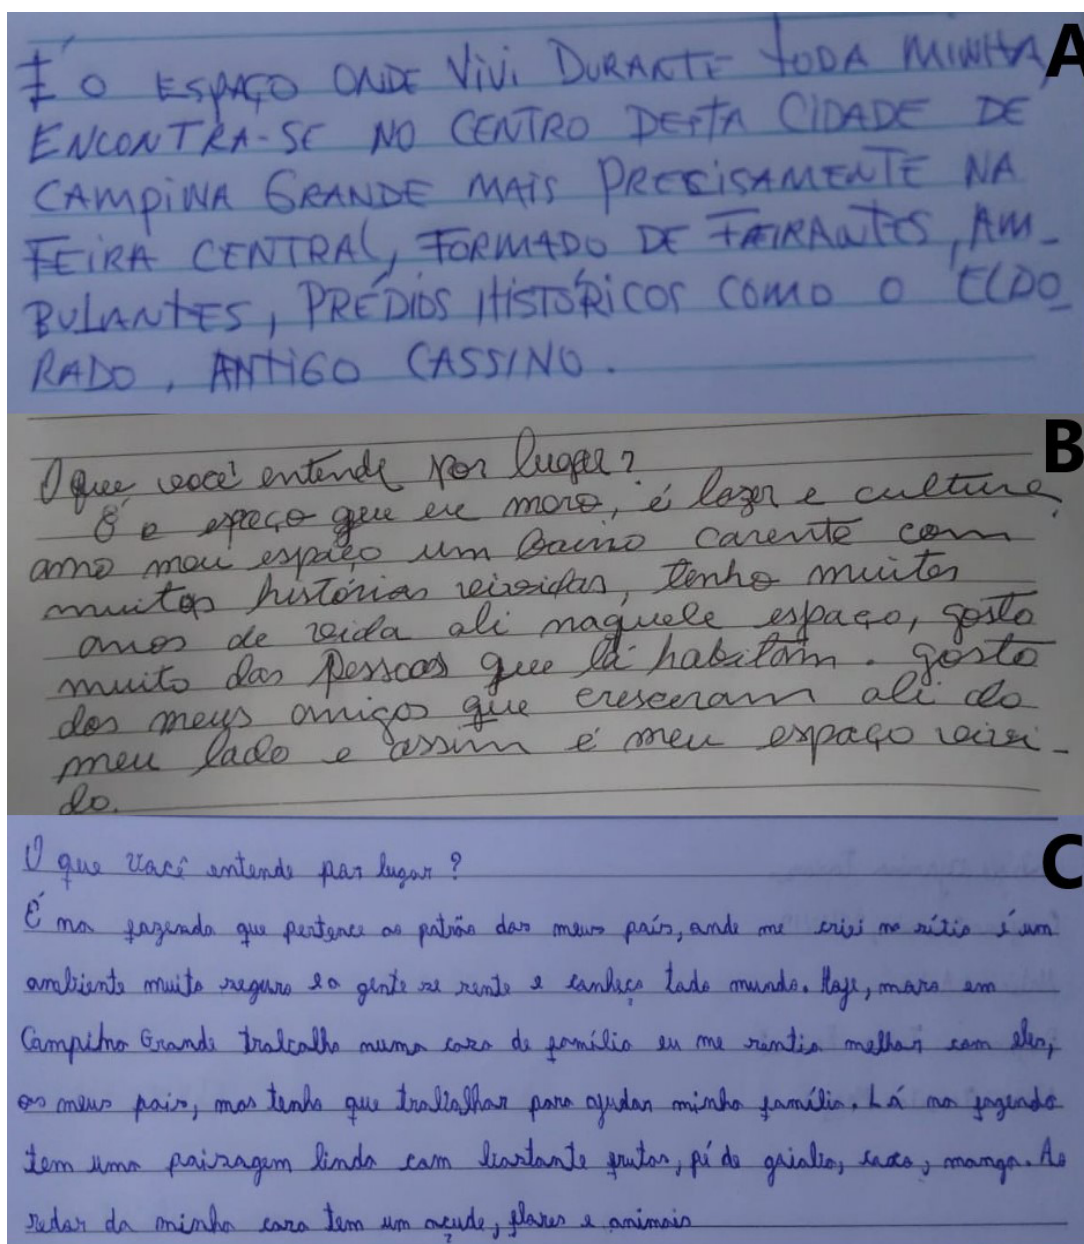 A
É O ESPAÇO ONDE VIVI DURANTE TODA MINHA,
ENCONTRA-SE NO CENTRO DESTA CIDADE DE
CAMPINA GRANDE MAIS PRECISAMENTE NA
FEIRA CENTRAL, FORMADO DE FEIRANTES, AM-
BULANTES, PRÉDIOS HISTÓRICOS COMO O ELDO
RADO, ANTIGO CASSINO.
B
O que você entende por lugar?
É o espaço que eu moro, é lazer e cultura,
amo meu espaço um bairro carente com
muitas histórias vividas, tenho muitos
anos de vida ali naquele espaço, gosto
muito das pessoas que lá habitam. gosto
dos meus amigos que cresceram ali do
meu lado e assim é meu espaço vivi-
do.
C
O que você entende por lugar?
É na fazenda que pertence ao patrão dos meus país, onde me criei no sítio é um
ambiente muito seguro e a gente se sente e conheço todo mundo. Hoje, moro em
Campina Grande trabalho numa casa de família eu me sentia melhor com eles,
os meus pais, mas tenho que trabalhar para ajudar minha família. Lá na fazenda
tem uma paizagem linda com bastante frutas, pé de goiaba, coco, manga. Ao
redor da minha casa tem um açude, flores e animais